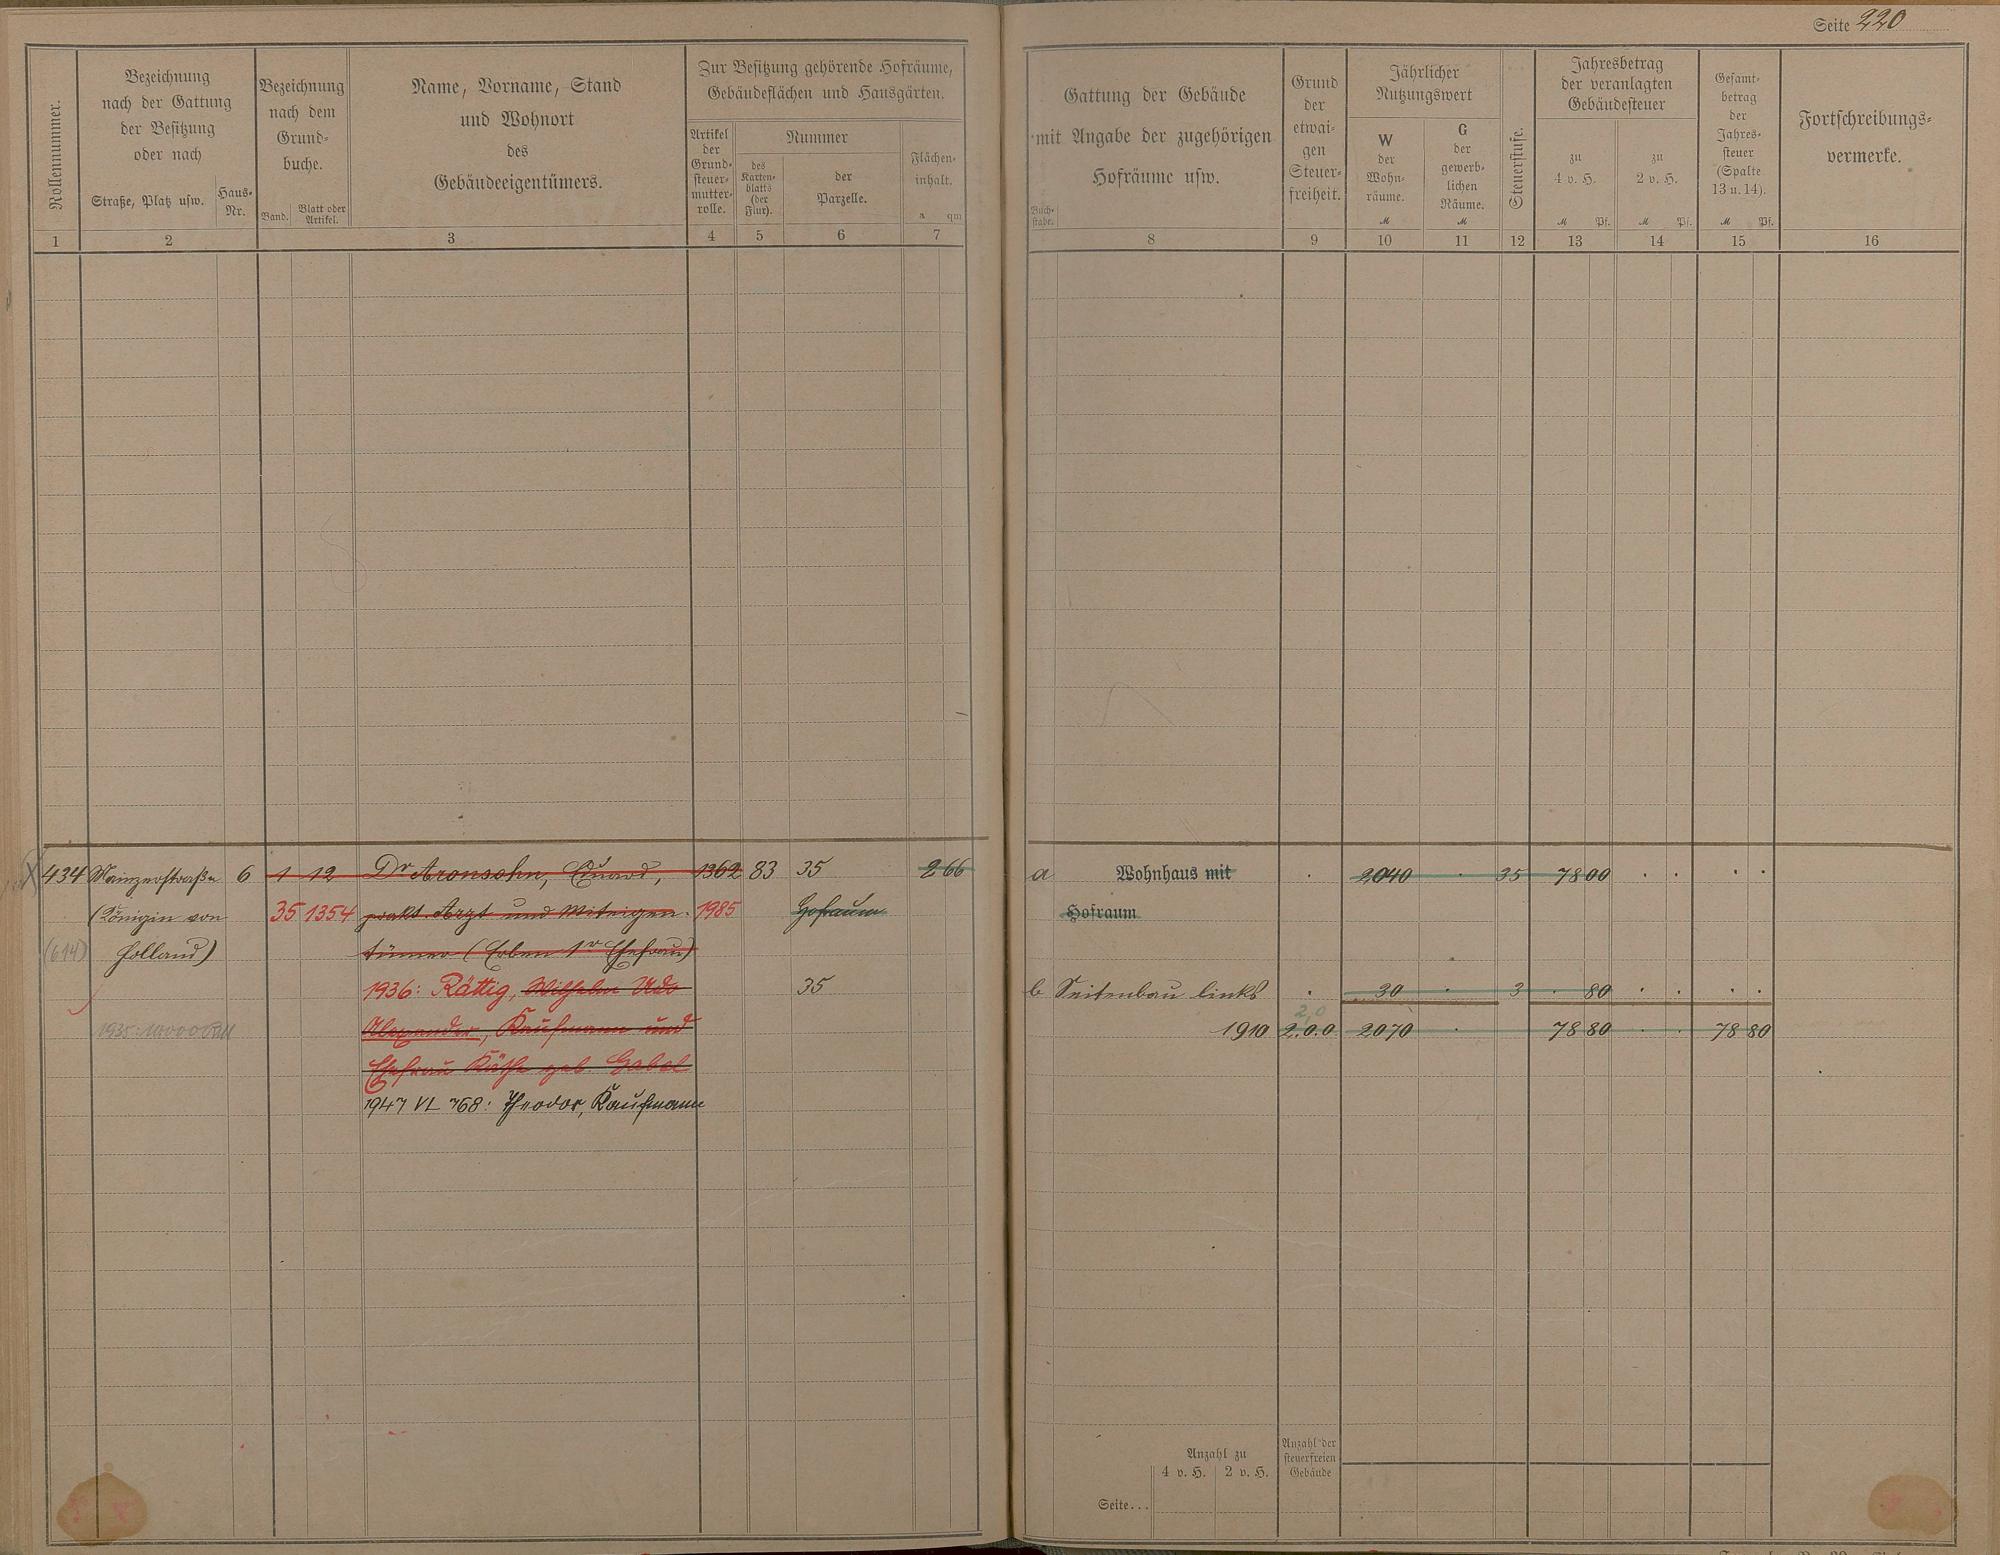 Seite 220
Rollennummer.
Bezeichnung
nach der Gattung
der Besitzung
oder nach
Straße, Platz usw.
Haus-
Nr.
Bezeichnung
nach dem
Grund-
buche.
Band.
Blatt oder
Artikel.
Name, Vorname, Stand
und Wohnort
des
Gebäudeeigentümers.
Zur Besitzung gehörende Hofräume,
Gebäudeflächen und Hausgärten.
Artikel
der
Grund-
steuer-
mutter-
rolle.
Nummer
des
Karten-
blatts
(der
Flur).
der
Parzelle.
Flächen-
inhalt.
a qm
1 2 3 4 5 6 7
Gattung der Gebäude
mit Angabe der zugehörigen
Hofräume usw.
Buch-
stabe.
Grund
der
etwai-
gen
Steuer-
freiheit.
Jährlicher
Nutzungswert
W
der
Wohn-
räume.
M
G
der
gewerb-
lichen
Räume.
M
Steuerstufe.
Jahresbetrag
der veranlagten
Gebäudesteuer
zu
4 v. H.
M Pf.
zu
2 v. H.
M Pf.
Gesamt-
betrag
der
Jahres-
steuer
(Spalte
13 u. 14).
M Pf.
Fortschreibungs-
vermerke.
8 9 10 11 12 13 14 15 16
434 Mainzerstraße 6 1 12 Dr Aronsohn, Eduard, 1362 83 35 2 66
(Königin von 35 1354 prakt. Arzt und Miteigen- 1985 Hofraum
(614) Holland) tümer (Erben 1r Ehefrau)
1936: Rättig, Wilhelm Udo 35
1935: 10000 RM Alexander, Kaufmann und
Ehefrau Käthe geb. Gabel
1947 VL 768: Theodor, Kaufmann
a Wohnhaus mit . 2040 . 35 78 00 . . . .
Hofraum
b Seitenbau links . 30 . 3 . 80 . . . .
2,0
1910 2.0.0 2070 . 78 80 . . 78 80
Anzahl zu
4 v. H. 2 v. H.
Anzahl der
steuerfreien
Gebäude
Seite...